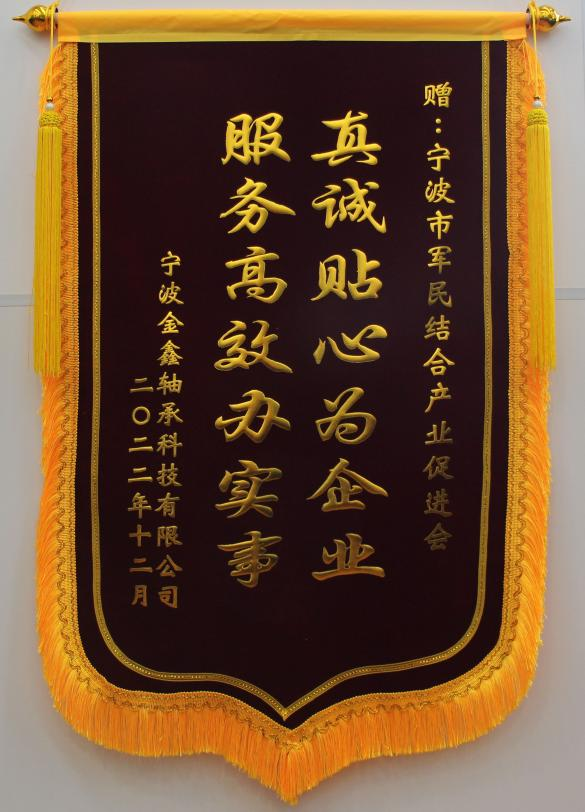 赠：宁波市军民结合产业促进会
真诚贴心为企业
服务高效办实事
宁波金鑫轴承科技有限公司
二〇二二年十二月